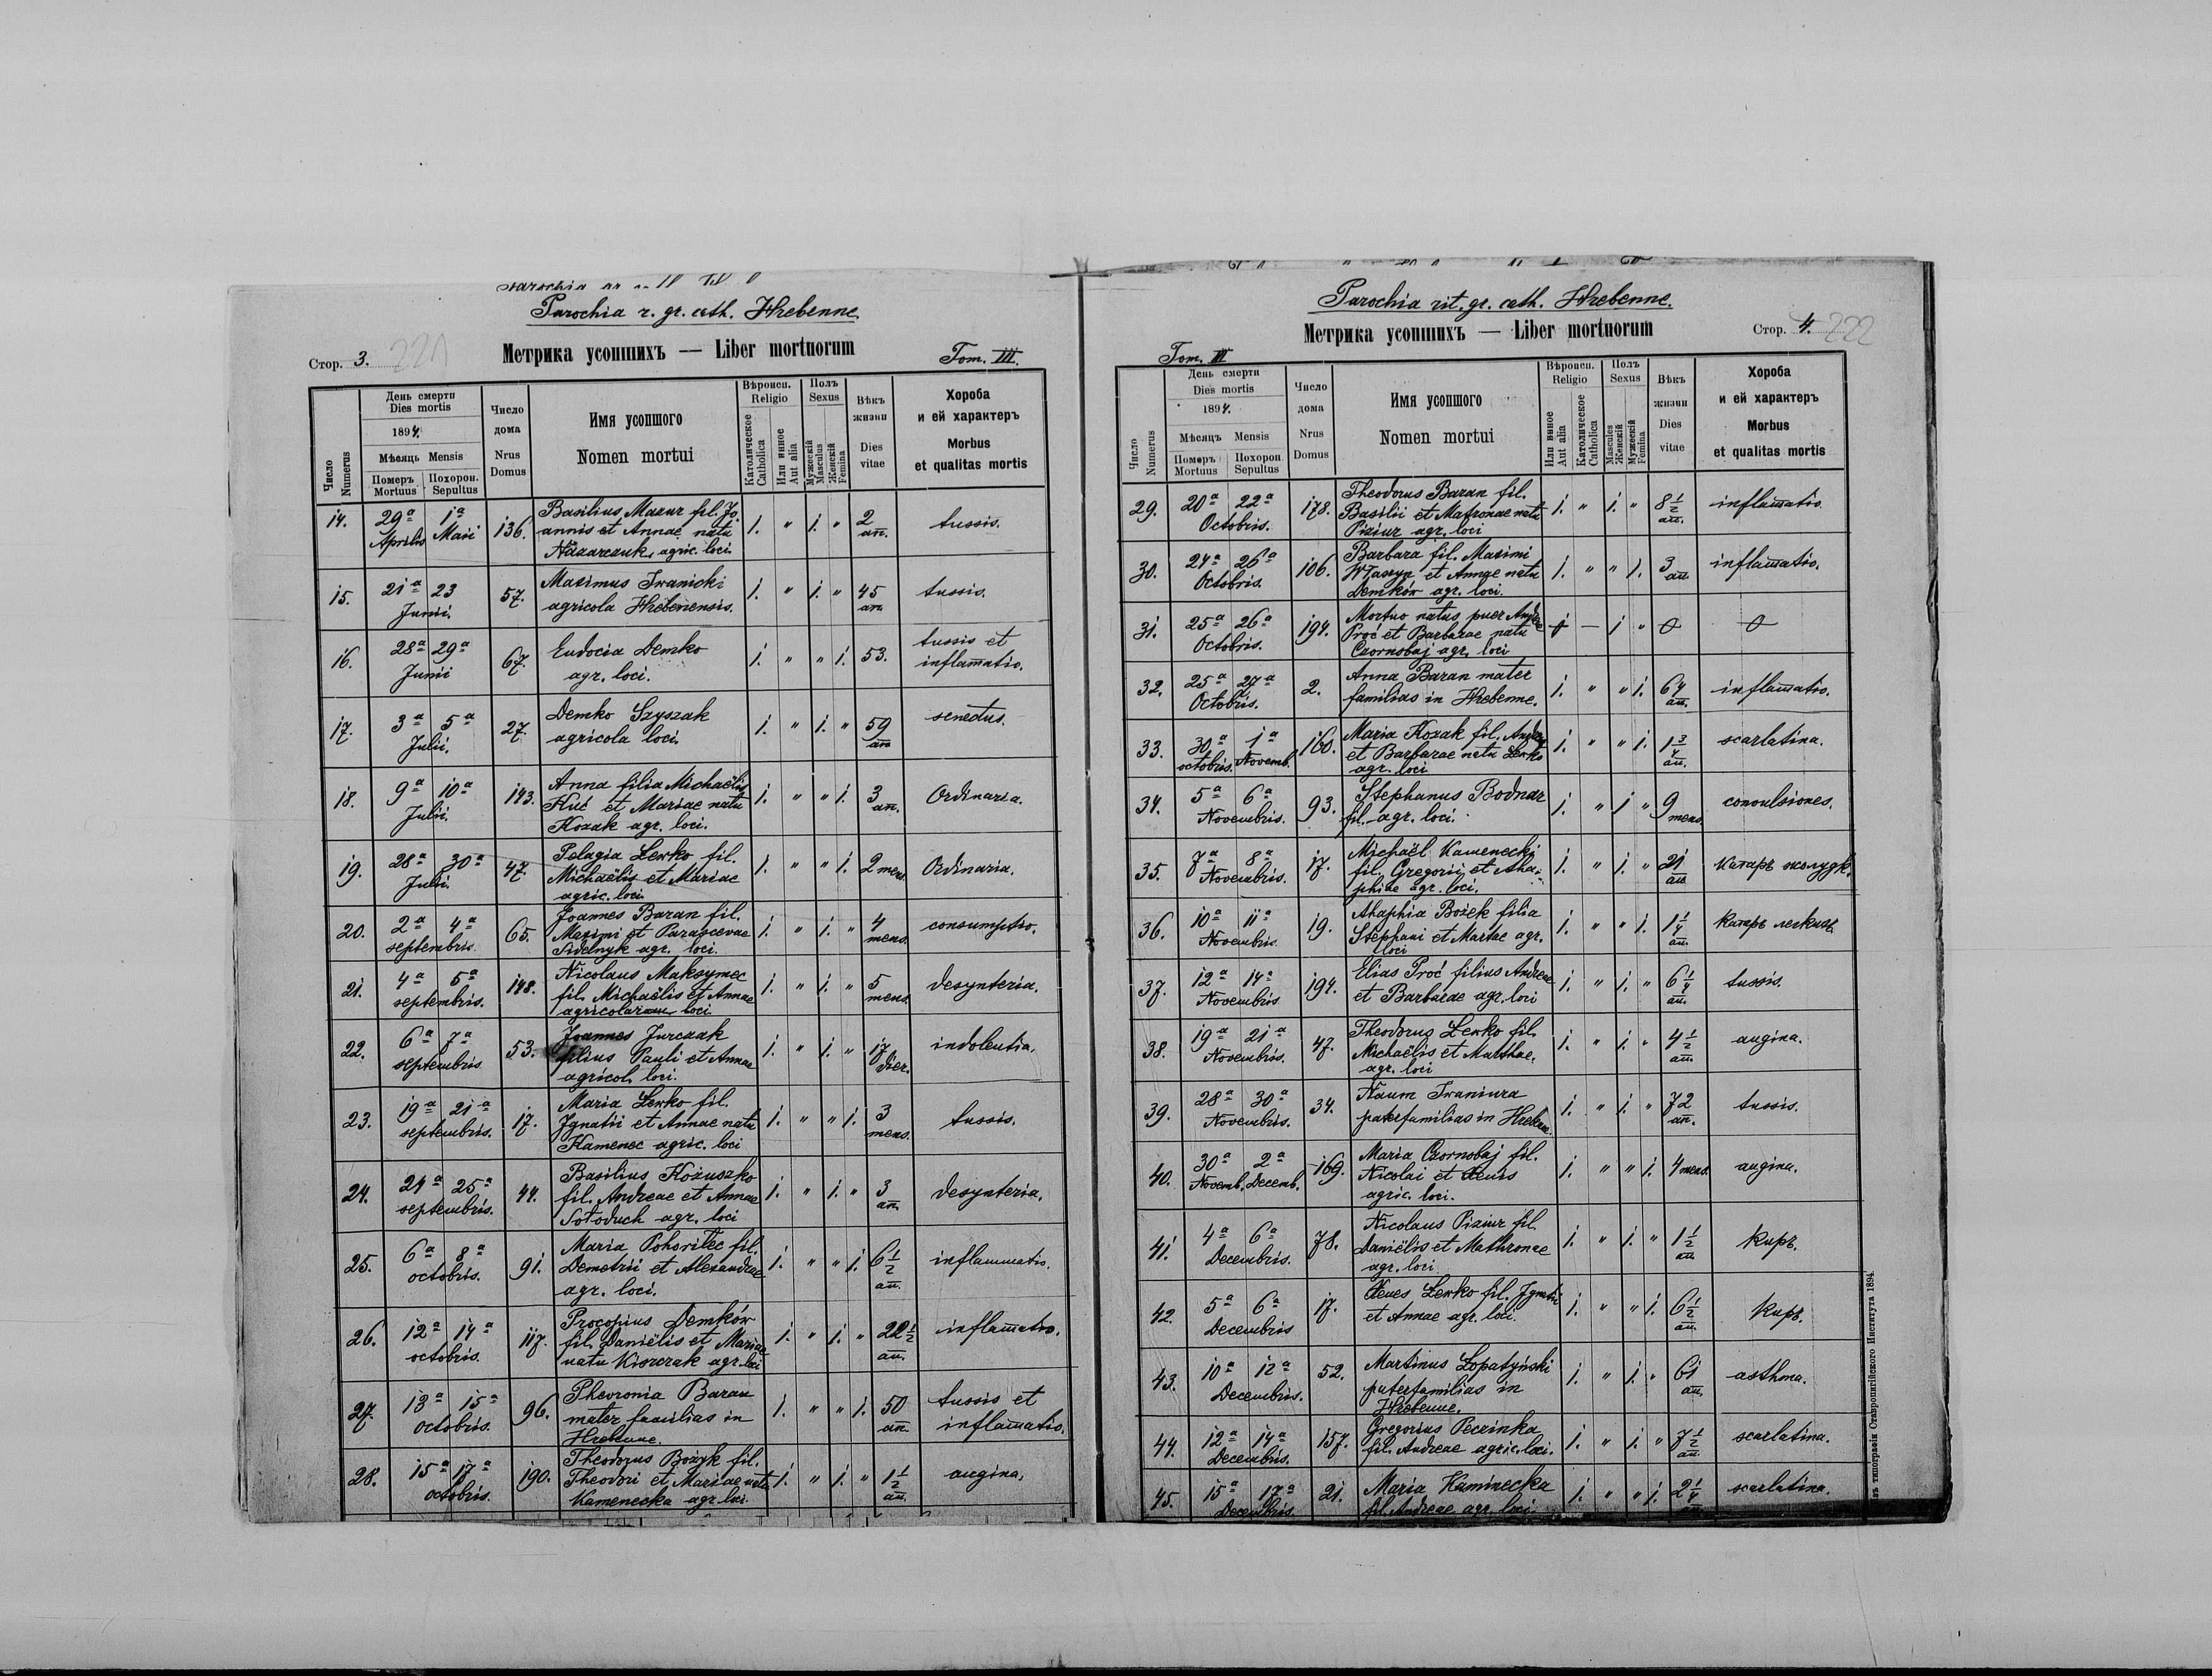 Parochia r. gr. cath. Hrebenne.
Стор. 3. 221
Метрика усопшихъ — Liber mortuorum
Tom. III.
Число Numerus
День смерти Dies mortis
1894.
Мѣсяць Mensis
Померъ Mortuus
Похорон. Sepultus
Число дома Nrus Domus
Имя усопшого
Nomen mortui
Вѣроисп. Religio
Католическое Catholica
Или инное Aut alia
Полъ Sexus
Мужескій Masculus
Женскій Femina
Вѣкъ жизни Dies vitae
Хороба и ей характеръ
Morbus et qualitas mortis
14. 29ª Aprilis 1ª Maii 136. Basilius Mazur fil. Jo-
annis et Annae nata
Nazarczuk, agric. loci. 1. " 1. " 2 an. tussis.
15. 21ª 23 Junii. 57. Maximus Iwanicki
agricola Hrebenensis. 1. " 1. " 45 an. tussis.
16. 28ª 29ª Junii 67. Eudocia Demko
agr. loci. 1. " " 1. 53. tussis et
inflammatio.
17. 3ª 5ª Julii. 27. Demko Szyszak
agricola loci. 1. " 1. " 59 an senectus.
18. 9ª 10ª Julii. 143. Anna filia Michaëlis
Kuć et Mariae nata
Kozak agr. loci. 1. " " 1. 3 an. Ordinaria.
19. 28ª 30ª Julii. 47. Pelagia Lewko fil.
Michaëlis et Mariae
agric. loci. 1. " " 1. 2 mens. Ordinaria.
20. 2ª 4ª septembris. 65. Joannes Baran fil.
Maximi et Parascevae
Sidelnyk agr. loci. 1. " 1. " 4 mens. consumptio.
21. 4ª 5ª septembris. 148. Nicolaus Maksymec
fil. Michaëlis et Annae
agricolarum loci 1. " 1. " 5 mens. desynteria.
22. 6ª 7ª septembris 53. Joannes Jurczak
filius Pauli et Annae
agricol. loci. 1. " 1. " 17 dier. indolentia.
23. 19ª 21ª septembris. 17. Maria Lewko fil.
Ignatii et Annae nata
Kamenec agric. loci 1. " " 1. 3 mens. tussis.
24. 24ª 25ª septembris. 44. Basilius Kożuszko
fil. Andreae et Annae
Sołoduch agr. loci 1. " 1. " 3 an. desynteria.
25. 6ª 8ª octobris. 91. Maria Pohorilec fil.
Demetrii et Alexandrae
agr. loci. 1. " " 1. 6 1/2 an. inflammatio.
26. 12ª 14ª octobris. 117. Procopius Demków
fil. Daniëlis et Mariae
nata agr. loci 1. " 1. " 22 1/2 an. inflammatio.
27. 13ª 15ª octobris. 96. Phevronia Baran
mater familias in
Hrebenne. 1. " " 1. 50 an. tussis et
inflammatio.
28. 15ª 17ª octobris. 190. Theodorus Bożyk fil.
Theodori et Mariae nata
Kamenecka agr. loci 1. " 1. " 1 1/2 an. angina.
Parochia rit. gr. cath. Hrebenne.
Метрика усопшихъ — Liber mortuorum
Стор. 4. 222
Tom. III
Число Numerus
День смерти Dies mortis
1894.
Мѣсяцъ Mensis
Померъ Mortuus
Похорон. Sepultus
Число дома Nrus Domus
Имя усопшого
Nomen mortui
Вѣроисп. Religio
Или инное Aut alia
Католическое Catholica
Полъ Sexus
Masculus Женскій
Мужескій Femina
Вѣкъ жизни Dies vitae
Хороба и ей характеръ
Morbus et qualitas mortis
29. 20ª 22ª Octobris. 178. Theodorus Baran fil.
Basilii et Matronae nata
Piziur agr. loci 1. " 1. " 8 1/2 an. inflammatio.
30. 24ª 26ª Octobris. 106. Barbara fil. Maximi
Właszyn et Annae nata
Demków agr. loci. 1. " " 1. 3 an. inflammatio.
31. 25ª 26ª Octobris. 194. Mortuo natus puer Andreae
Proć et Barbarae nata
Czornobaj agr. loci — 1 "
32. 25ª 27ª Octobris. 2. Anna Baran mater
familias in Hrebenne. 1. " " 1. 64 an. inflammatio.
33. 30ª octobris. 1ª Novemb. 160. Maria Kozak fil. Andreae
et Barbarae nata Lewko
agr. loci 1. " " 1. 1 3/4 an. scarlatina.
34. 5ª 6ª Novembris. 93. Stephanus Bodnar
fil. agr. loci. 1. " 1 " 9 mens. convulsiones.
35. 7ª 8ª Novembris. 17. Michaël Kamenecki
fil. Gregorii et Aha-
phiae agr. loci. 1. " 1. " 21 an катаръ жолудк.
36. 10ª 11ª Novembris. 19. Ahaphia Bożek filia
Stephani et Mariae agr.
loci 1. " " 1. 1 1/4 an. катаръ легкихъ.
37. 12ª 14ª Novembris 194. Elias Proć filius Andreae
et Barbarae agr. loci 1. " 1. " 6 1/4 an. tussis.
38. 19ª 21ª Novembris. 47. Theodorus Lewko fil.
Michaëlis et Marthae.
agr. loci 1. " 1. " 4 1/2 an. angina.
39. 28ª 30ª Novembris. 34. Naum Iwaniura
paterfamilias in Hrebene. 1. " 1. " 72 an. tussis.
40. 30ª Novemb. 2ª Decemb. 169. Maria Czornobaj fil.
Nicolai et
agric. loci. 1. " " 1. 4 mens. angina.
41. 4ª 6ª Decembris. 78. Nicolaus Piziur fil.
Daniëlis et Mathronae
agr. loci 1. " 1. " 1 1/2 an киръ.
42. 5ª 6ª Decembris 17. Lewko fil. Ignatii
et Annae agr. loci. 1. " " 1. 6 1/2 an. киръ.
43. 10ª 12ª Decembris. 52. Martinus Lopatyński
paterfamilias in
Hrebenne. 1. " 1. " 61 an. asthma.
44. 12ª 14ª Decembris. 157. Gregorius Peczinka
fil. Andreae agric. loci. 1. " 1. " 7 1/2 an. scarlatina.
45. 15ª 17ª Decembris. 21. Maria Kaminecka
fil. Andreae agr. loci. 1. " " 1. 2 1/4 an. scarlatina.
Зъ типографіи Ставропигійского Института 1894.